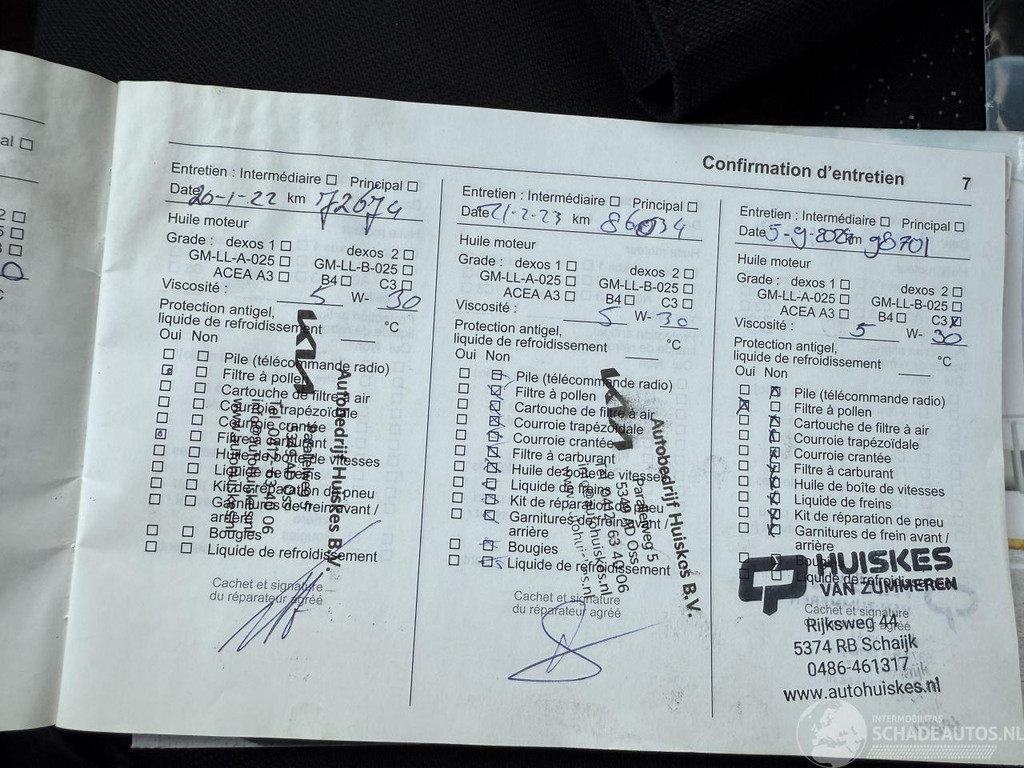 al
Confirmation d'entretien 7
Entretien : Intermédiaire Principal
Date 20-1-22 km 72674
Huile moteur
Grade : dexos 1 dexos 2
GM-LL-A-025 GM-LL-B-025
ACEA A3 B4 C3
Viscosité : 5 W- 30
Protection antigel,
liquide de refroidissement °C
Oui Non
Pile (télécommande radio)
Filtre à pollen
Cartouche de filtre à air
Courroie trapézoïdale
Courroie crantée
Filtre à carburant
Huile de boîte de vitesses
Liquide de freins
Kit de réparation de pneu
Garnitures de frein avant /
arrière
Bougies
Liquide de refroidissement
Cachet et signature
du réparateur agréé
KIA
Autobedrijf Huiskes B.V.
Entretien : Intermédiaire Principal
Date 21-2-23 km 86034
Huile moteur
Grade : dexos 1 dexos 2
GM-LL-A-025 GM-LL-B-025
ACEA A3 B4 C3
Viscosité : 5 W- 30
Protection antigel,
liquide de refroidissement °C
Oui Non
Pile (télécommande radio)
Filtre à pollen
Cartouche de filtre à air
Courroie trapézoïdale
Courroie crantée
Filtre à carburant
Huile de boîte de vitesses
Liquide de freins
Kit de réparation de pneu
Garnitures de frein avant /
arrière
Bougies
Liquide de refroidissement
Cachet et signature
du réparateur agréé
Autobedrijf Huiskes B.V.
Paralelweg 5
5349 AD Oss
Entretien : Intermédiaire Principal
Date 5-9-2024 km 98701
Huile moteur
Grade : dexos 1 dexos 2
GM-LL-A-025 GM-LL-B-025
ACEA A3 B4 C3
Viscosité : 5 W- 30
Protection antigel,
liquide de refroidissement °C
Oui Non
Pile (télécommande radio)
Filtre à pollen
Cartouche de filtre à air
Courroie trapézoïdale
Courroie crantée
Filtre à carburant
Huile de boîte de vitesses
Liquide de freins
Kit de réparation de pneu
Garnitures de frein avant /
arrière
Bougies
Liquide de refroidissement
Cachet et signature
HUISKES
VAN ZUMMEREN
Rijksweg 44
5374 RB Schaijk
0486-461317
www.autohuiskes.nl
INTERMOBILITAS
SCHADEAUTOS.NL